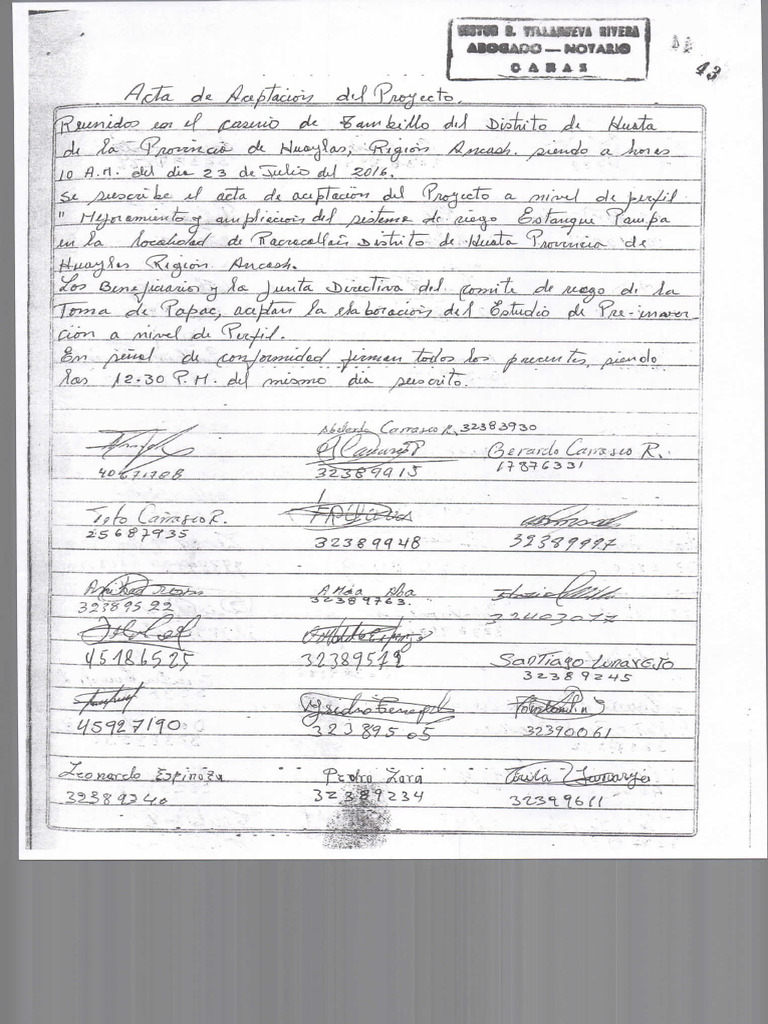 NESTOR R. VILLANUEVA RIVERA
ABOGADO — NOTARIO
CARAZ
43
Acta de Aceptación del Proyecto.
Reunidos en el caserio de Tambillo del Distrito de Huata
de la Provincia de Huaylas, Región Ancash. siendo a horas
10 A.M. del dia 23 de Julio del 2016.
Se suscribe el acta de aceptación del Proyecto a nivel de perfil
" Mejoramiento y ampliación del sistema de riego Estanque Pampa
en la localidad de Racracallan Distrito de Huata Provincia de
Huaylas Región Ancash.
Los Beneficiarios y la Junta Directiva del comite de riego de la
Toma de Papac, aceptan la elaboración del Estudio de Pre-inver
ción a nivel de Perfil.
En señal de conformidad firman todos los precentes, siendo
las 12.30 P.M. del mismo dia suscrito.
Abelardo Carrasco R. 32383930
Gerardo Carrasco R.
40671788 32389915 17876331
Tito Carrasco R.
25687935 32389948 32389997
32389522 32389763. 32403077
45186525 32389579 Santiago Lunarejo
32389245
Ysidro
45927190 32389505 32390061
Leonardo Espinoza Pedro Zara
32389240 32389234 32399611